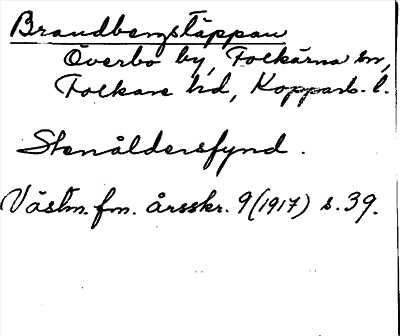 Brandbergstäppan
Överbo by, Folkärna sn,
Folkare hd, Kopparb. l.
Stenåldersfynd.
Västm. fm. årsskr. 9 (1917) s. 39.